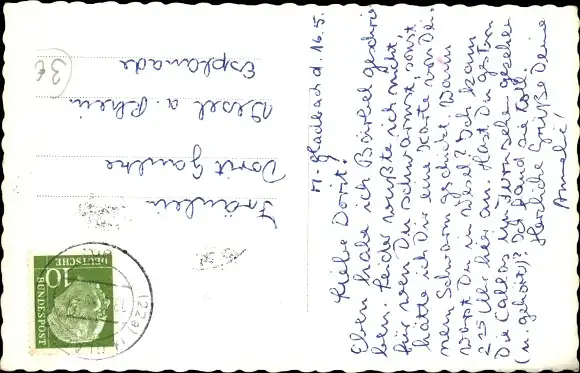 M.-Gladbach d. 16.5.
Liebe Dorit!
Eben habe ich Bärbel geschrie-
ben. Leider wußte ich nicht,
für wen Du schwärmst, sonst
hätte ich Dir eine Karte von Dei-
nem Schwarm geschickt. Wann
warst Du in Wesel? Ich kam
215 Uhr hier an. Hast Du gestern
die Callas im Fernsehen gesehen
(u. gehört)? Ich fand sie toll.
Herzliche Grüße Deine
Anneli!
Fräulein
Dorit
Wesel a. Rhein
Esplanade
36
10
DEUTSCHE
BUNDESPOST
(22a)